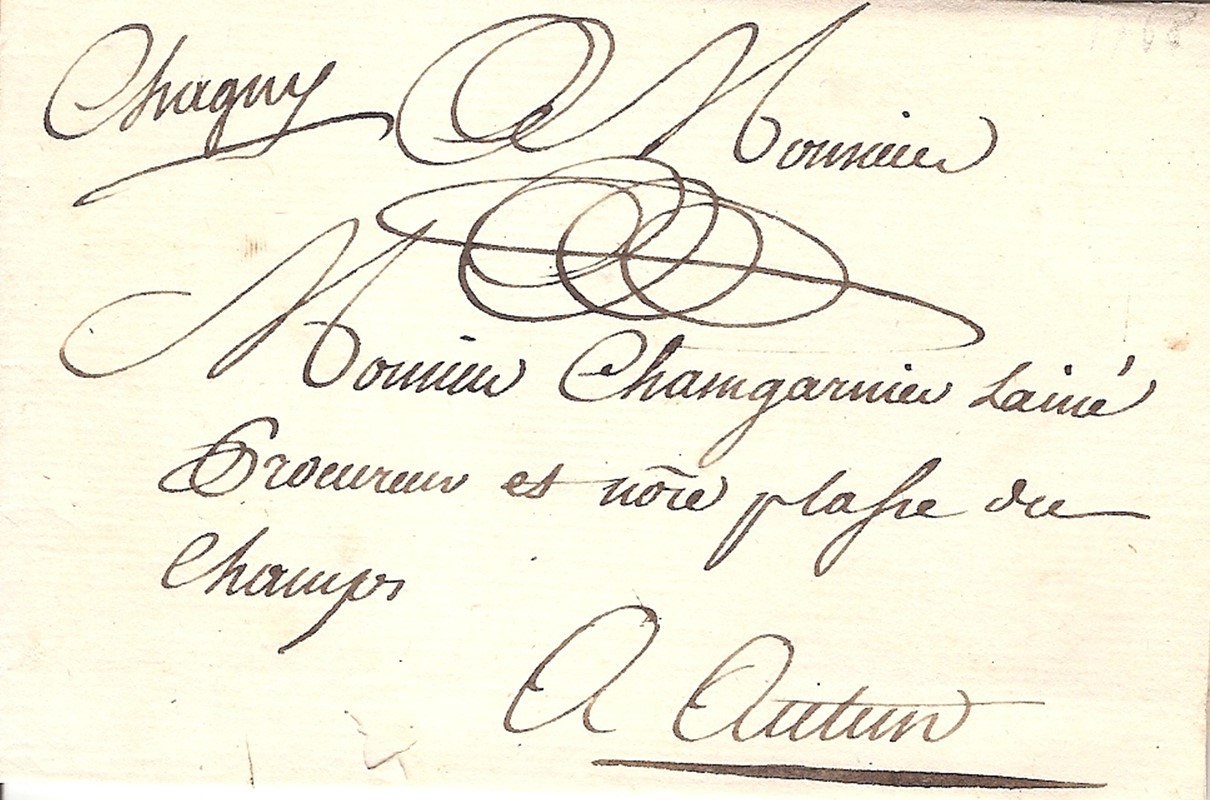 Chagny A Monsieur
Monsieur Chamgarnier Lainé
Procureur et no̅re plasse du
Champs
A Autun